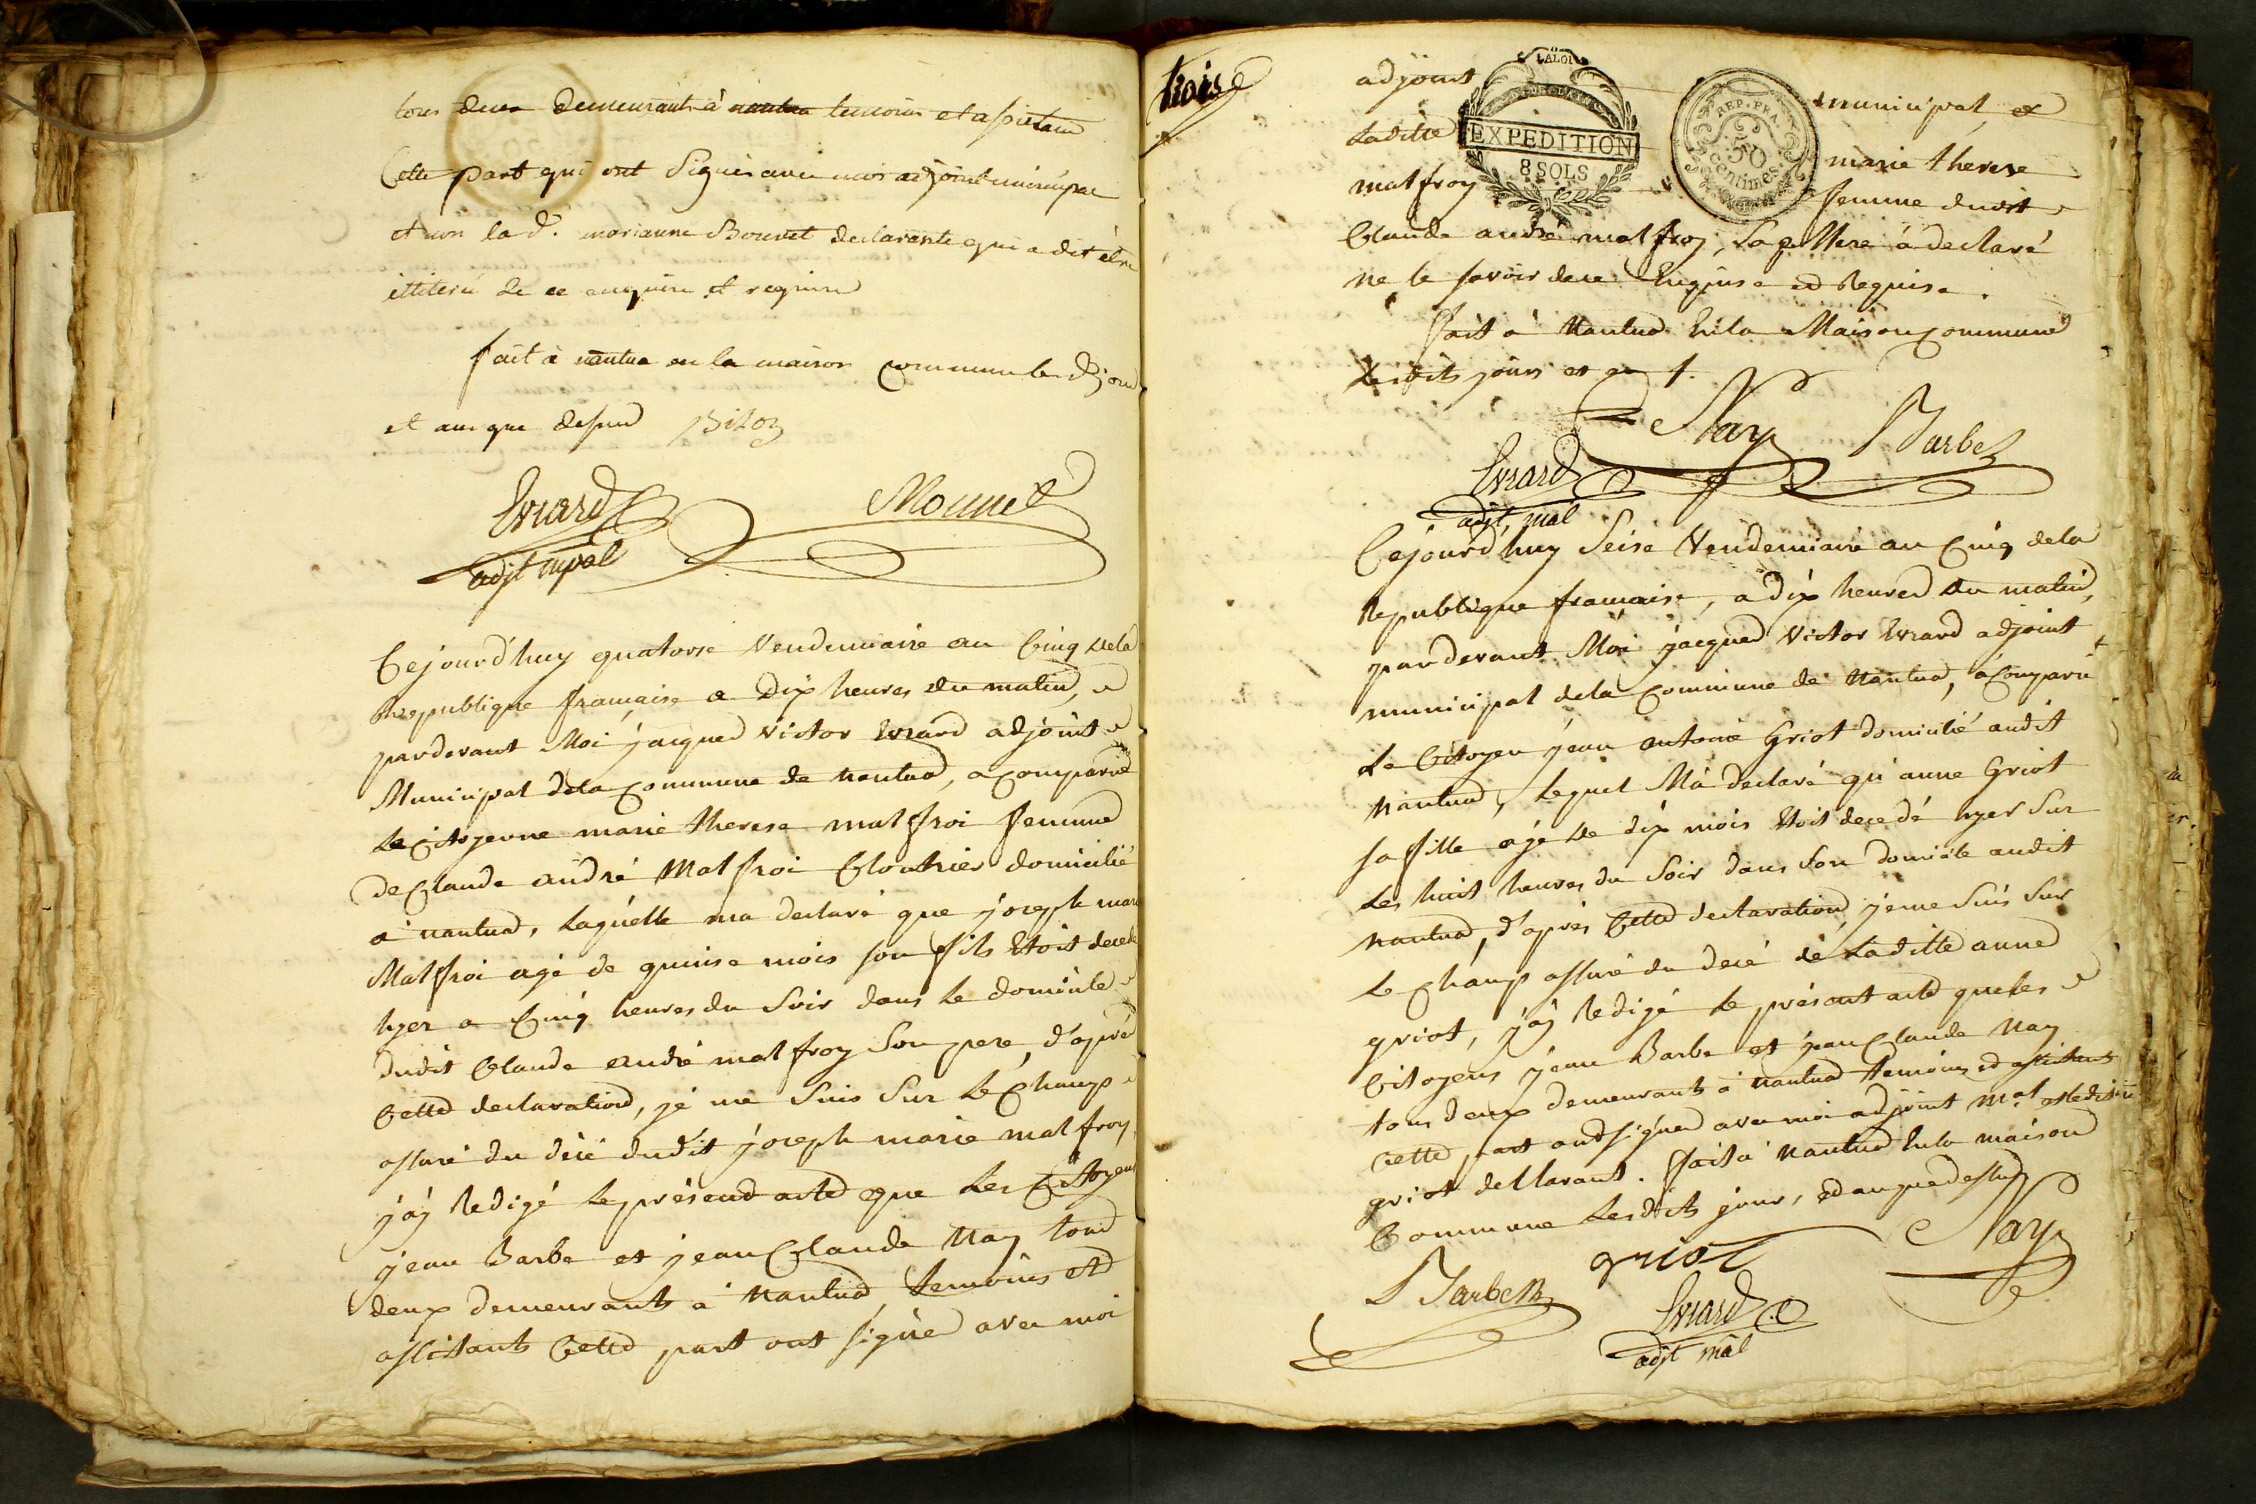 tous deux demeurants à nantua temoins et assistans
Cette part qui ont Signés avec moi adjoint municipal
et non la d. marianne Bouvet declarante qui a dit être
illiterée de ce enquise et requise
fait à nantua en la maison commune les d. jour
et an que dessus Biloz
Evrard
Monnet
adjt mpal
Cejourd'huy quatorse Vendemiaire an Cinq dela
republique française a Dix heures du matin,
pardevant Moi jacques Victor Evrard adjoint
Municipal dela Commune de nantua, a Comparüe
La Citoyenne marie therese malfroi femme
de Claude andré Malfroi Cloutrier domicilié
à nantua, Laquelle ma declaré que joseph marie
Malfroi agé de quinse mois son fils Etoit decedé
hyer a Cinq heures du Soir dans Le domicile
dudit Claude andré malfroy Son pere, d'après
Cette declaration, je me Suis Sur Le Champ
assuré du décé dudit joseph marie malfroy,
j'ay Redigé Le présend acte que Les Citoyens
jean Barbe et jean Claude Nay tous
deux demeurants à Nantua, temoins et
assistants Cette part ont signé avec moi
trois
adjoint municipal et
LA LOI
EXPEDITION
8 SOLS
REP. FRA.
50
Centimes
Laditte marie therese
malfroy femme dudit
Claude andré malfroy, Laquelle a declaré
ne le savoir dece Enquise et Requise.
fait à Nantua En la Maison Commune
Lesdits jours et an
Nay Barbe
Evrard
adjt. mal
Cejourd'huy Seise Vendemiaire an Cinq dela
Republique française, a dix heures du matin,
pardevant Moi jacques Victor Evrard adjoint
municipal dela Commune de Nantua, à Comparu
Le Citoyen jean antoine Griot domicilié audit
Nantua, Lequel M'a declaré qu'anne Griot
sa fille agé de dix mois Etoit decedé hyer Sur
Les huit heures du Soir dans Son domicile audit
Nantua, d'après Cette declaration, jeme Suis Sur
Le Champ assuré du decé de Laditte anne
griot, j'ay Redigé Le présant acte que les
Citoyens jean Barbe et jean Claude Nay
tous deux demeurants à Nantua temoins et assistants
Cette part ont signé avec moi adjoint mal et ledit
griot declarant. fait à Nantua En la maison
Commune Lesdits jour, et an que dessus
Barbe griot Nay
Evrard
adjt mal